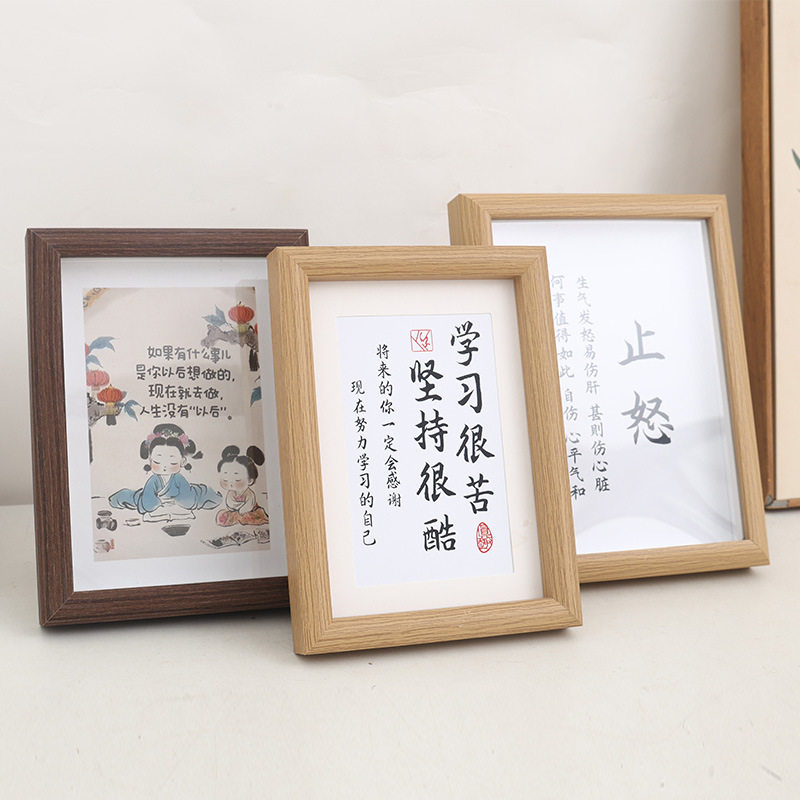 如果有什么事儿
是你以后想做的,
现在就去做,
人生没有“以后”。
学习很苦
坚持很酷
将来的你一定会感谢
现在努力学习的自己
止怒
生气发怒易伤肝 甚则伤心脏
何事值得如此 自伤 心平气和